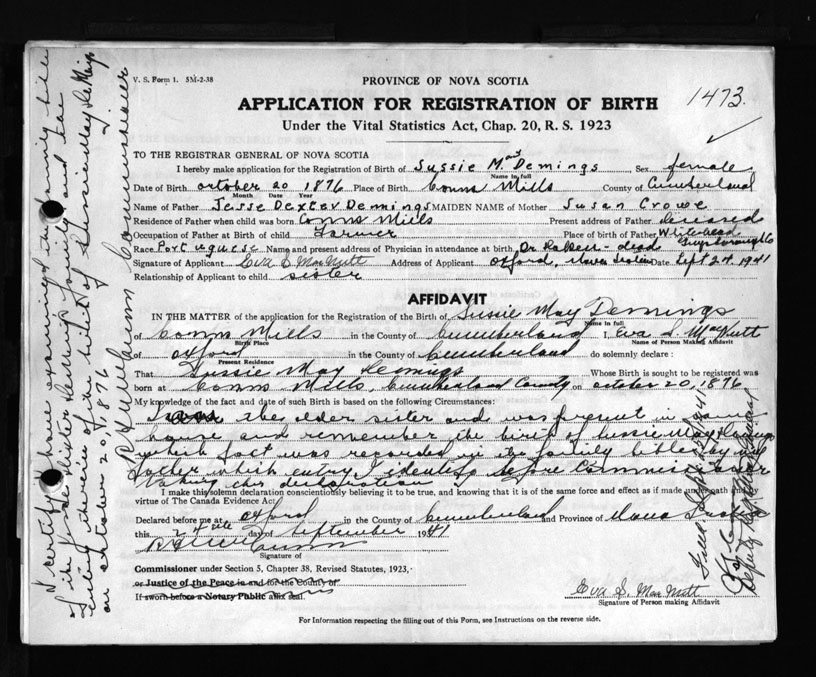 V. S. Form 1. 5M-2-38
PROVINCE OF NOVA SCOTIA
1473
APPLICATION FOR REGISTRATION OF BIRTH
Under the Vital Statistics Act, Chap. 20, R. S. 1923
TO THE REGISTRAR GENERAL OF NOVA SCOTIA
I hereby make application for the Registration of Birth of Sussie May Demings Sex female
Name in full
Date of Birth october 20 1876 Place of Birth Conns Mills County of Cumberland
Month Date Year
Name of Father Jesse Dexter Demings MAIDEN NAME of Mother Susan Crowe
Residence of Father when child was born Conns Mills Present address of Father deceased
Occupation of Father at Birth of child Farmer Place of birth of Father Whitehead
Guysborough Co
Race Portuguese Name and present address of Physician in attendance at birth Dr - dead
Signature of Applicant Eva S MacNutt Address of Applicant oxford, Nova Scotia Date Sept 24 1941
Relationship of Applicant to child sister
AFFIDAVIT
IN THE MATTER of the application for the Registration of the Birth of Sussie May Demings
Name in full
of Conns Mills in the County of Cumberland I, Eva S. MacNutt
Birth Place Name of Person Making Affidavit
of oxford in the County of Cumberland do solemnly declare:
Present Residence
That Sussie May Demings Whose Birth is sought to be registered was
born at Conns Mills, Cumberland County on october 20, 1876
My knowledge of the fact and date of such Birth is based on the following Circumstances:
the elder sister and was present in same
house and remember the birth of Sussie May Demings
which fact was recorded in the family bible by my
father which entry I identify before Commissioner
taking this declaration
I make this solemn declaration conscientiously believing it to be true, and knowing that it is of the same force and effect as if made under oath and
virtue of The Canada Evidence Act.
Declared before me at oxford in the County of Cumberland and Province of Nova Scotia
this 24th day of September 1941
Signature of
Commissioner under Section 5, Chapter 38, Revised Statutes, 1923,
or Justice of the Peace in and for the County of
If sworn before a Notary Public affix seal.
Eva S. MacNutt
Signature of Person making Affidavit
For Information respecting the filling out of this Form, see Instructions on the reverse side.
I certify I have examined the family bible
entry therein of the birth of Sussie May Demings
on october 20, 1876
Commissioner
Deputy